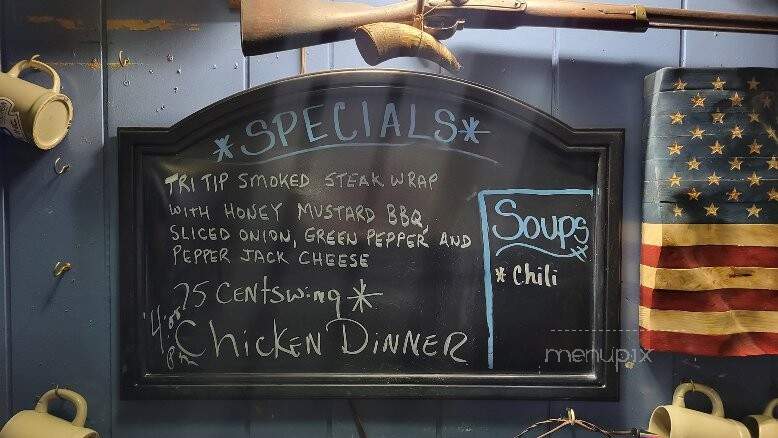 *SPECIALS*
TRI TIP SMOKED STEAK WRAP
WITH HONEY MUSTARD BBQ,
SLICED ONION, GREEN PEPPER AND
PEPPER JACK CHEESE
75 CENTSwing *
4:00
pm
CHICKEN DINNER
Soups
* Chili
menupix